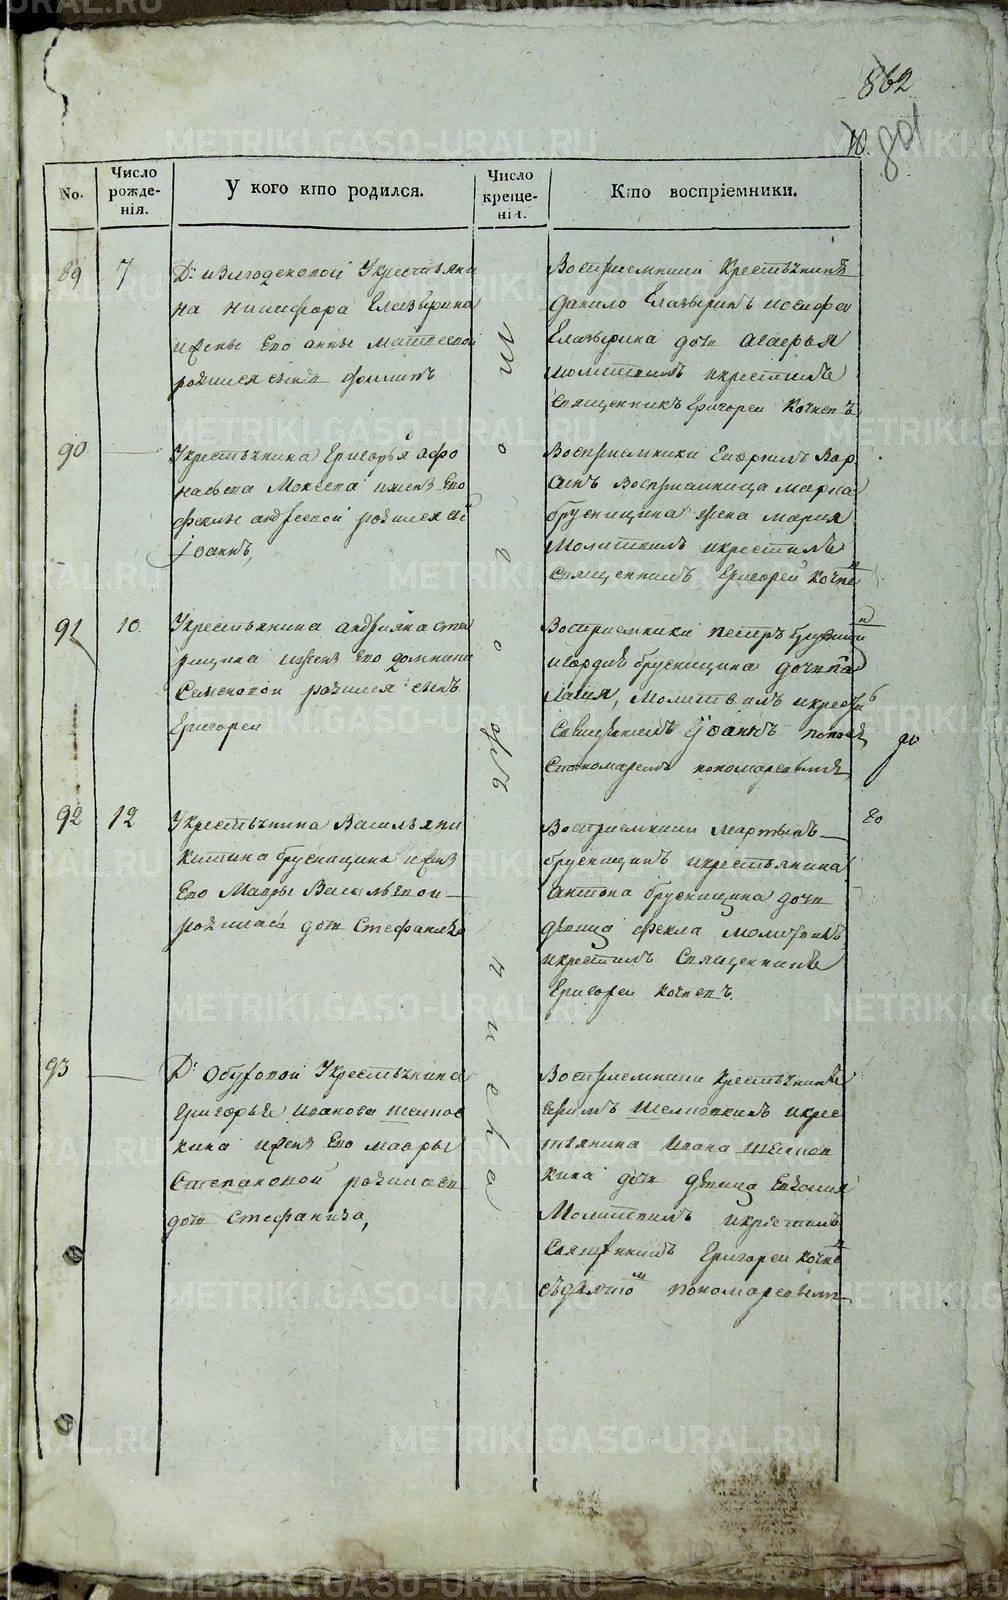 862
801
No.
Число рожде-нія.
У кого кто родился.
Число креще-нія.
Кто воспріемники.
89
7
Укрестьяни
на никифора Елазырина
ижены Его анны
родился сынъ филипъ
Того же числа
Восприемники Крестьянинъ
данило Елазыринъ иосифа
Елазырина дочь агафья
молитвилъ икрестилъ
Священникъ Григореи Кочневъ
90
Укрестьянина Григорья афо
насьева Мокеева ижены Его
феклы андреевой родился сынъ
Іоаннъ,
Восприемники Гаврилъ
Восприемница марка
брусницина жена мария
Молитвилъ икрестилъ
Священникъ Григорей Кочне
91
10
Укрестьянина андрияна
ижены Его домники
Семеновой родился сынъ
Григореи
Восприемники петръ брусницы
брусницина дочь па
лагия, Молитвилъ икрести
Священникъ Іоаннъ поповъ
Спономаремъ пономаревымъ
92
12
Укрестьянина Василья ни
китина брусницина ижены
Его Мавры Васильевой
родилась дочь Стефанида
Восприемники мартынъ
брусницинъ икрестьянина
антона брусницина дочь
девица фекла молитвилъ
икрестилъ Священникъ
Григореи Кочневъ.
93
Д: Обуховой Укрестьянина
Григорья иванова шелпов
кина ижены Его мавры
Степановой родилась
дочь Стефанида,
Восприемники Крестьянинъ
Ефимъ Шелповкинъ икрес
тьянина Ивана шелпов
кина дочь девица Евдокия
Молитвилъ икрестилъ
Священникъ Григореи Кочне
съдьячкомъ пономаревымъ
METRIKI.GASO-URAL.RU